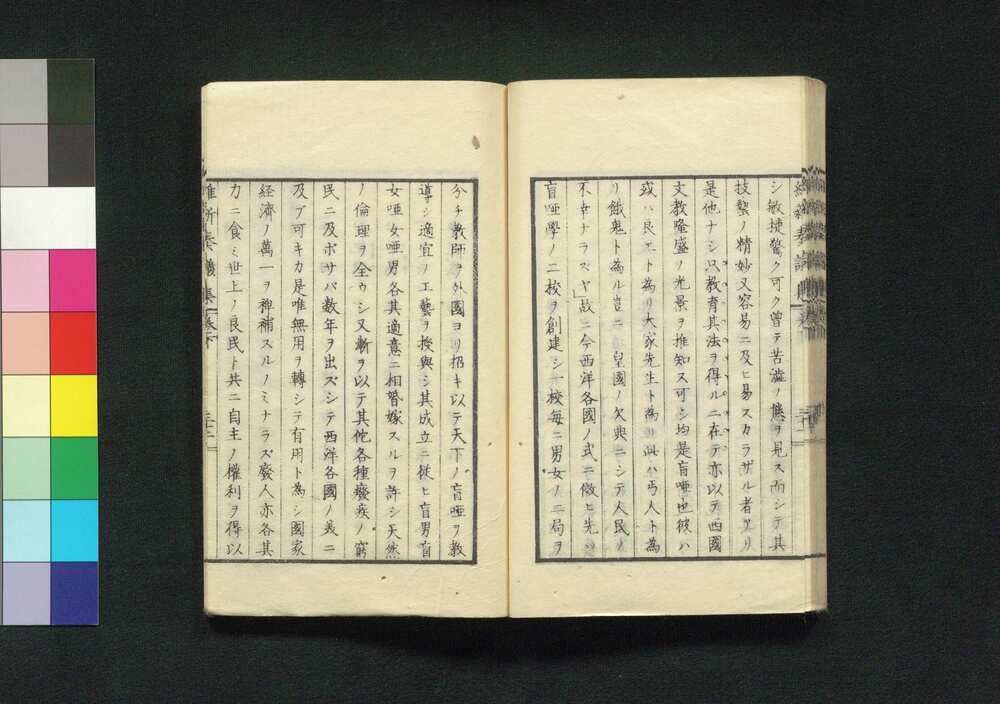 シ敏捷驚ク可ク曽テ苦澁ノ態ヲ見ス而シテ其
技藝ノ精妙又容易ニ及ヒ易スカラザル者アリ
是他ナシ只教育其法ヲ得ルニ在テ亦以テ西國
文教隆盛ノ光景ヲ推知ス可シ均是盲唖也彼ハ
或ハ良工ト為リ大家先生ト為リ此ハ丐人ト為
リ餓鬼ト為ル豈ニ皇國ノ欠典ニシテ人民ノ
不幸ナラスヤ故ニ今西洋各國ノ式ニ倣ヒ先ツ
盲唖學ノ二校ヲ創建シ一校毎ニ男女ノ二局ヲ
分チ教師ヲ外國ヨリ招キ以テ天下ノ盲唖ヲ教
導シ適宜ノ工藝ヲ授與シ其成立ニ從ヒ盲男盲
女唖女唖男各其適意ニ相婚嫁スルヲ許シ天然
ノ倫理ヲ全ウシ又漸ヲ以テ其他各種癈疾ノ窮
民ニ及ボサバ数年ヲ出ズシテ西洋各國ノ美ニ
及ブ可キカ是唯無用ヲ轉シテ有用ト為シ國家
経濟ノ萬一ヲ裨補スルノミナラズ癈人亦各其
力ニ食ミ世上ノ良民ト共ニ自主ノ權利ヲ得以
維新奏議集 卷下